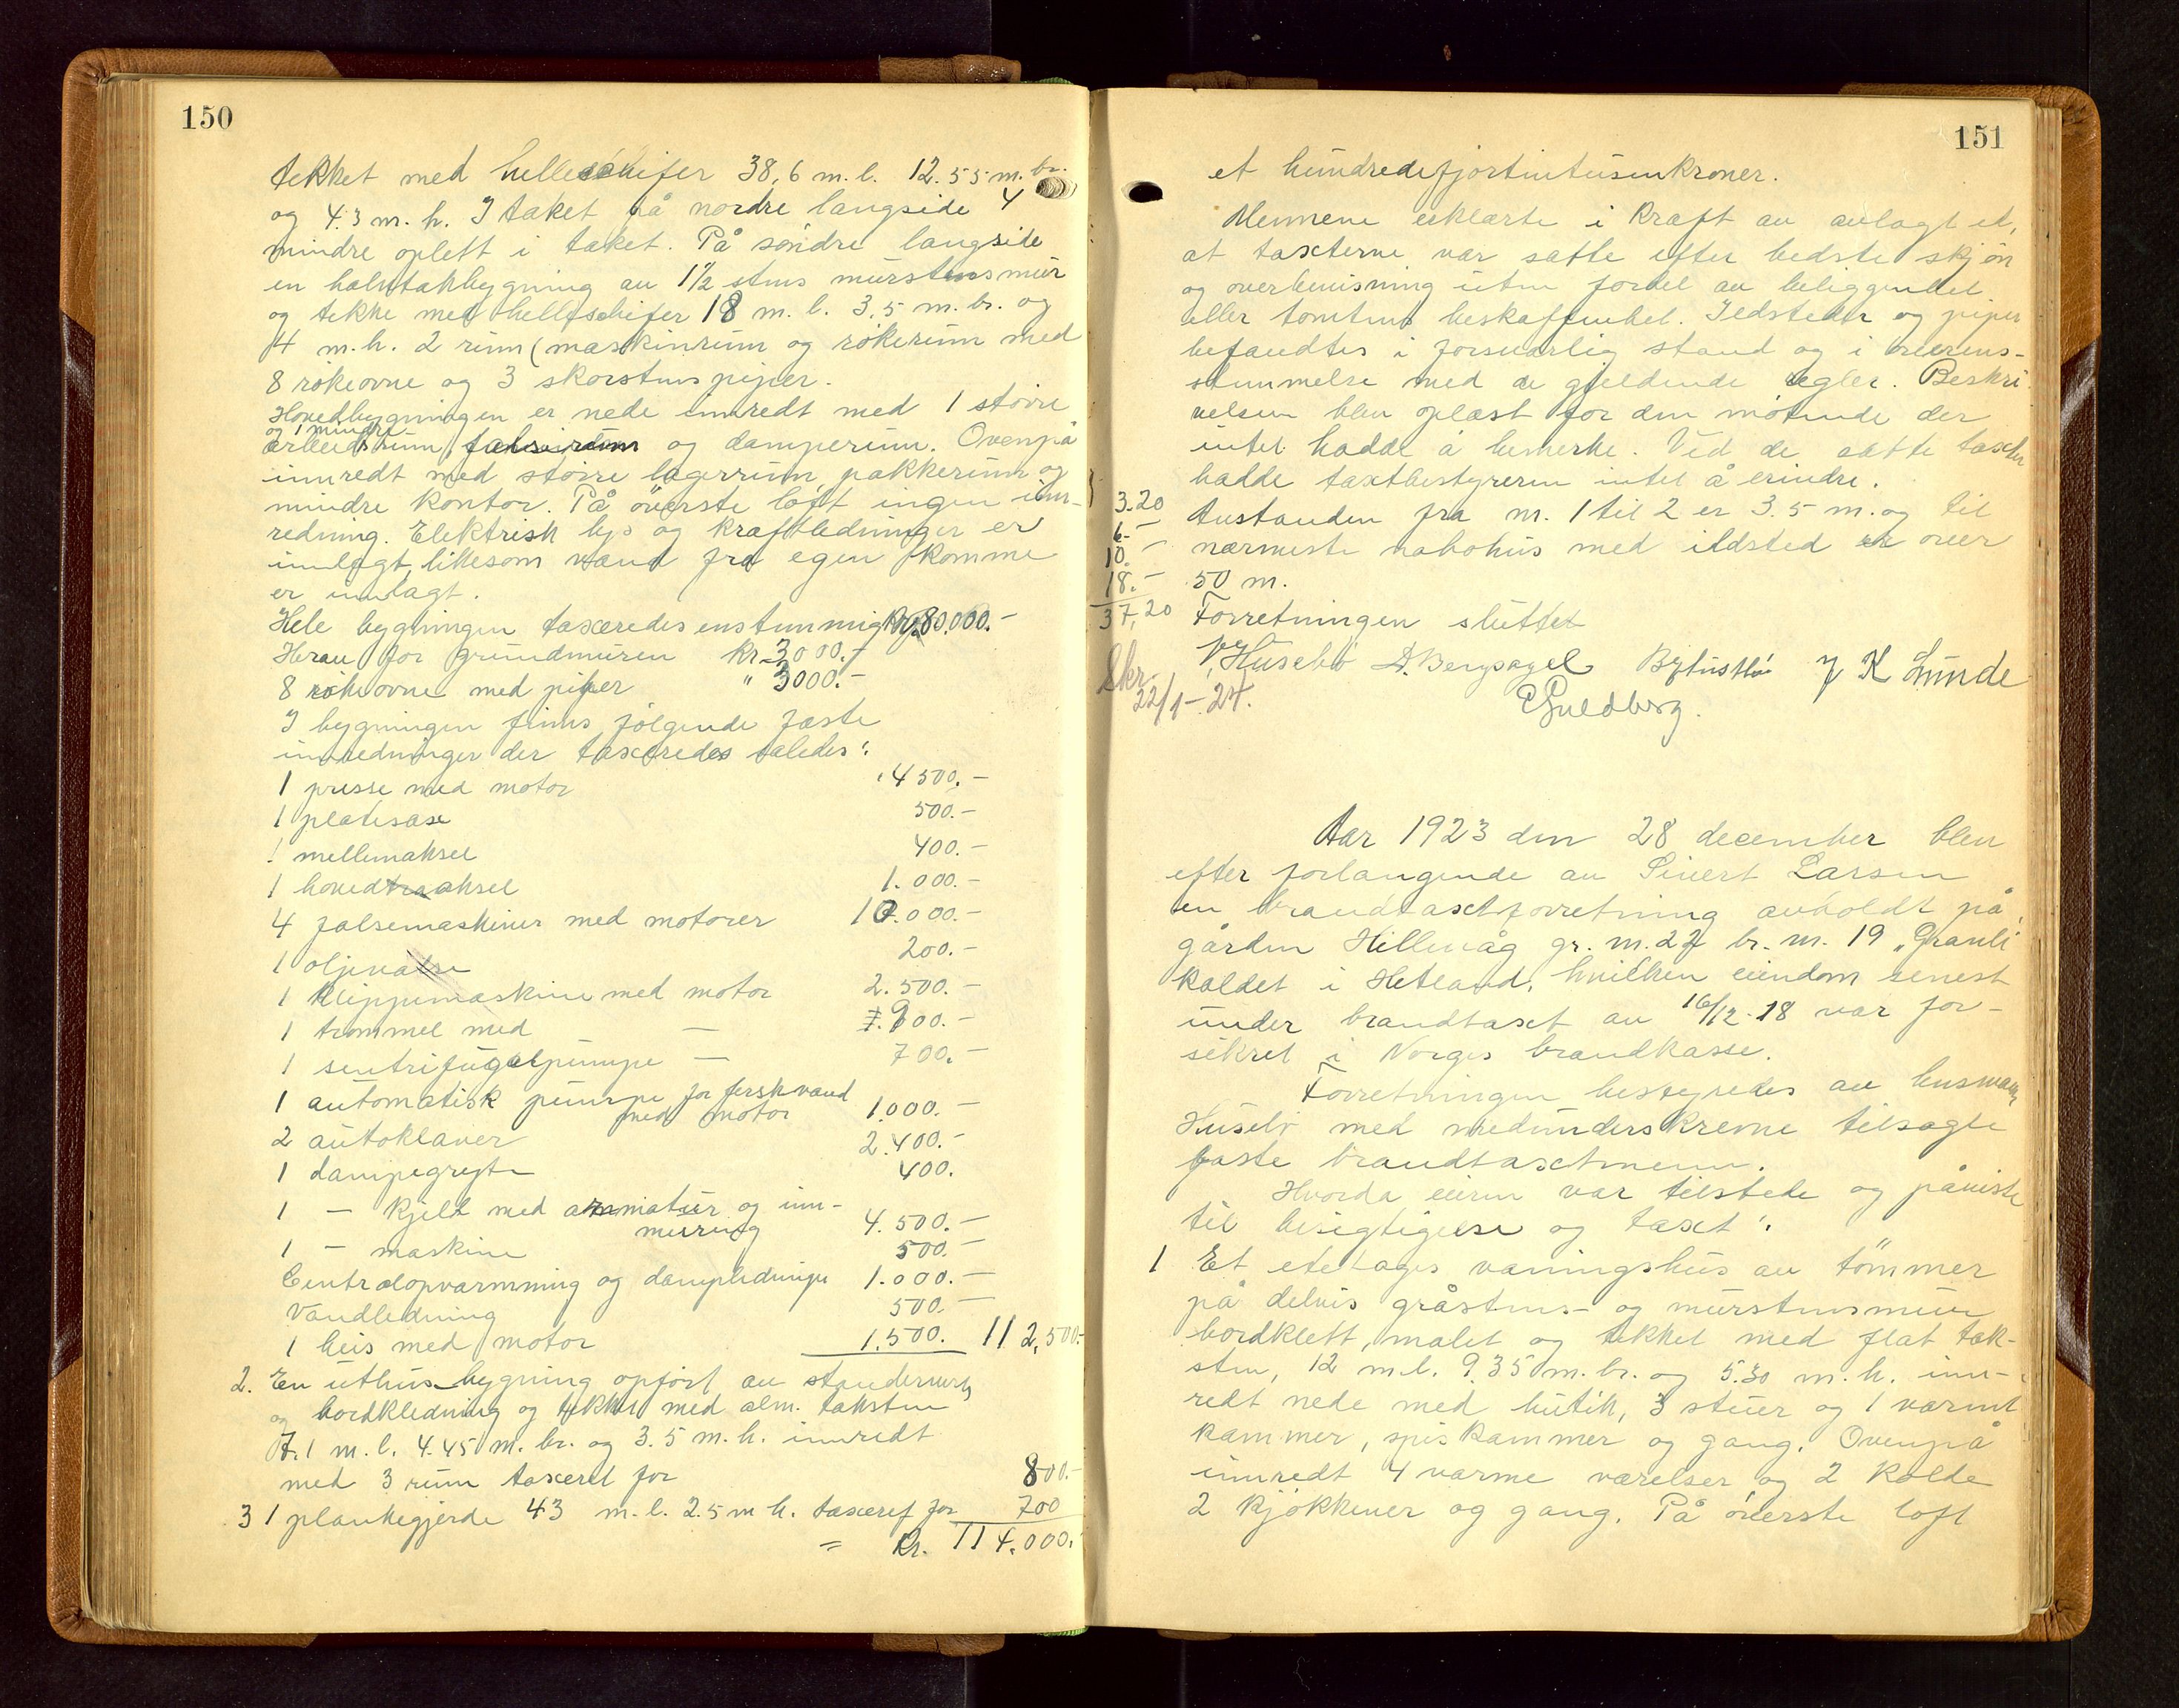 150
tekket med helleschifer 38,6 m. l. 12.55 m. br.
og 4.3 m. h. I taket på nordre langside 4
mindre oplett i taket. På søndre langside
en halvtakbygning av 1½ stens murstensmur
og tekke med helleschifer 18 m. l. 3.5 m. br. og
4 m. h. 2 rum (maskinrum og rökerum med
8 rökeovne og 3 skorstenspiper.
Hovedbygningen er nede innredt med 1 större
og 1 mindre
arbeidsrum og damperum. Ovenpå
innredt med större lagerrum, pakkerum og
mindre kontor. På överste loft ingen inn-
redning. Elektrisk lys og kraftledninger er
innlagt likesom vand fra egen komme
er innlagt.
Hele bygningen taxeredes enstemmig 80.000.-
Herav for grundmuren Kr. 3000.-
8 rökeovne med piper " 3000.-
I bygningen finns fölgende faste
innredninger der taxeredes saledes:
1 presse med motor 4500.-
1 platesax 500.-
1 mellemaksel 400.-
1 hovedaksel 1.000.-
4 falsemaskiner med motorer 10.000.-
1 oljevalse 200.-
1 klippemaskine med motor 2.500.-
1 trommel med — 00.-
1 sentrifugalpumpe — 700.-
1 automatisk pumpe for ferskvand
med motor 1.000.-
2 autoklaver 2.400.-
1 dampegryte 400.
1 — kjell med armatur og inn-
muring 4.500.-
1 — maskine 500.-
Centralopvarmning og dampledninger 1.000.-
Vandledning 500.-
1 heis med motor 1.500. 112,500.-
2. En uthus-bygning opfört av standerverk
og bordkledning og tekket med alm. taksten
7.1 m. l. 4.45 m. br. og 3.5 m. h. innredt
med 3 rum taxeret for 800.-
3 1 plankegjerde 43 m. l. 2.5 m h. taxeret for 700
= Kr. 114.000.-
151
et hundredefjortentusenkroner.
Mennene erklærte i kraft av avlagt ed,
at taxterne var satte efter bedste skjön
og overbevisning uten fordel av beliggenhet
eller tomtens beskaffenhet. Ildsteder og piper
befandtes i forsvarlig stand og i overens-
stemmelse med de gjeldende regler. Beskri-
velsen blev oplæst for den mötende der
intet hadde å bemerke. Ved de satte taxter
hadde taxtbestyreren intet å erindre.
3.20
6.-
10.-
18.-
37,20
Avstanden fra nr. 1 til 2 er 3.5 m. og til
nærmeste nabohus med ildsted er over
50 m.
Forretningen sluttet
Husebö A. Bergsagel J K Lunde
Skr.
22/1-24.
Guldberg.
Aar 1923 den 28 december blev
efter forlangende av Sivert Larsen
en brandtaxtforretning avholdt på
gården Hillevåg gr. nr. 27 br. nr. 19 „Granli
kaldet i Hetland, hvilken eiendom senest
under brandtaxt av 16/12-18 var for-
sikret i Norges brandkasse.
Forretningen bestyredes av lensmann
Husebö med medunderskrevne tilsagte
faste brandtaxtmenn.
Hvorda eieren var tilstede og påviste
til besigtigelse og taxt:
1 Et etetages vaningshus av tömmer
på delvis gråstens- og murstensmur
bordklett, malet og tekket med flat tak-
sten, 12 m. l. 9.35 m. br. og 5.30 m. h. inn-
redt nede med butik, 3 stuer og 1 varmt
kammer, spiskammer og gang. Ovenpå
innredt 4 varme værelser og 2 kolde
2 kjökkener og gang. På överste loft